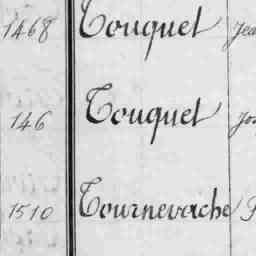 1468 Touquet Jea
146 Touquet Jos
1510 Tournevache